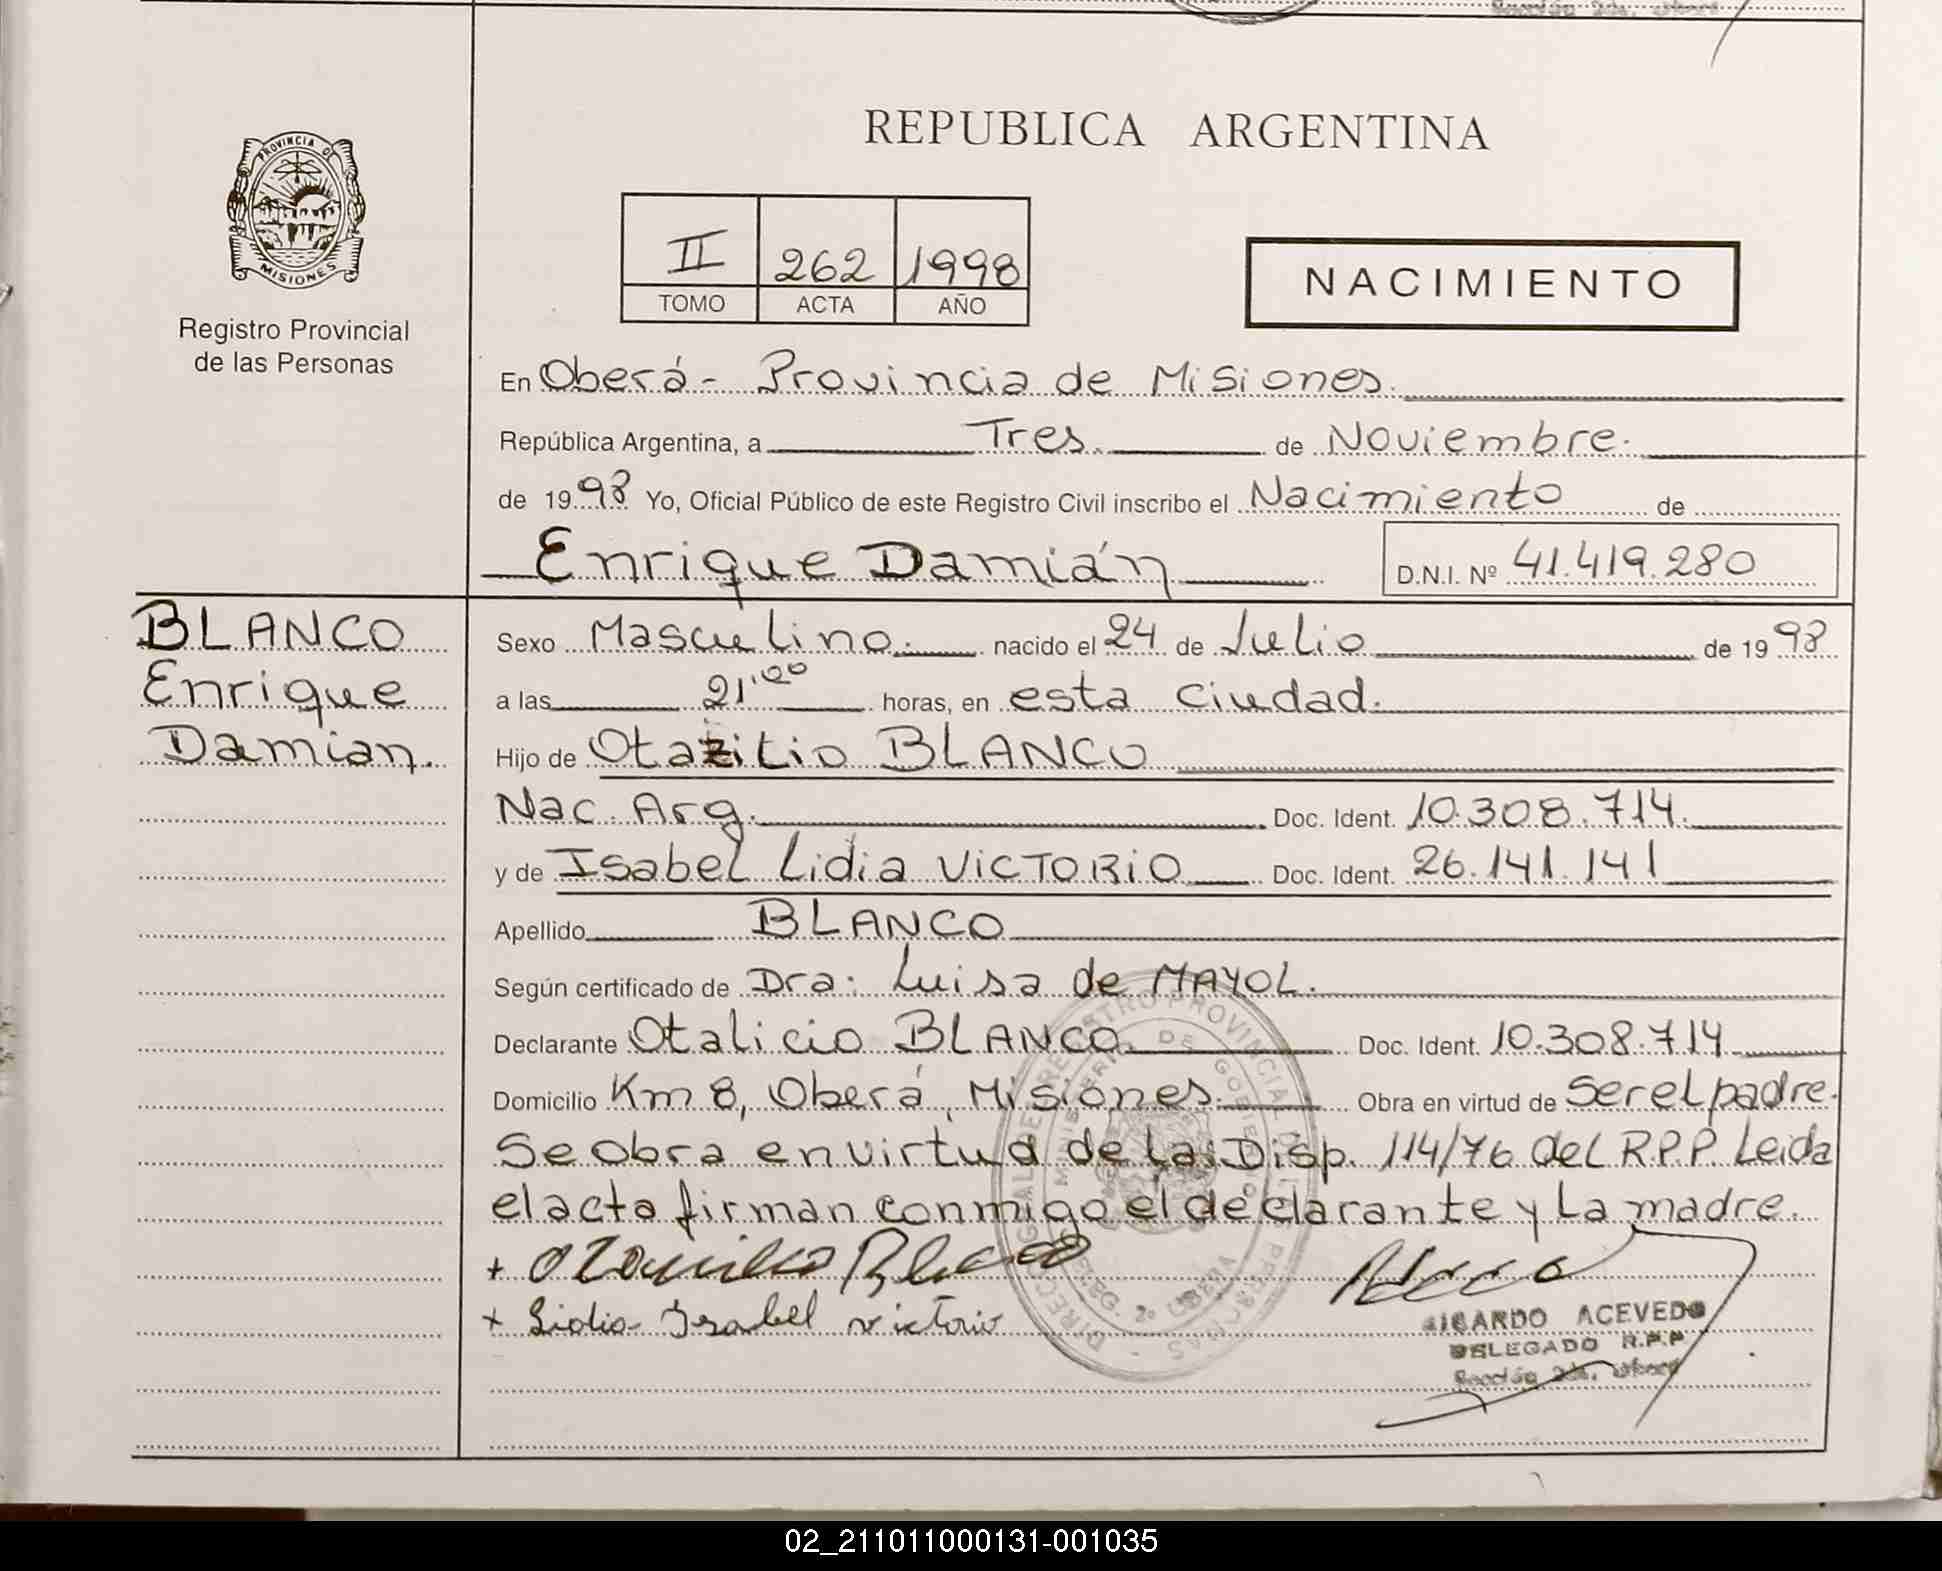 REPUBLICA ARGENTINA
PROVINCIA DE
MISIONES
Registro Provincial
de las Personas
II 262 1998
TOMO ACTA AÑO
NACIMIENTO
En Oberá - Provincia de Misiones.
República Argentina, a Tres. de Noviembre.
de 1998 Yo, Oficial Público de este Registro Civil inscribo el Nacimiento de
Enrique Damián
D.N.I. Nº 41.419.280
BLANCO
Enrique
Damian.
Sexo Masculino. nacido el 24 de Julio de 1998
a las 21'00 horas, en esta Ciudad.
Hijo de Otazilio BLANCO
Nac. Arg. Doc. Ident. 10.308.714.
y de Isabel Lidia VICTORIO Doc. Ident. 26.141.141
Apellido BLANCO
Según certificado de Dra: Luisa de MAYOL.
Declarante Otalicio BLANCO. Doc. Ident. 10.308.714
Domicilio Km 8, Oberá, Misiones. Obra en virtud de Ser el padre.
Se obra en virtud de la Disp. 114/76 del R.P.P. Leida
el acta firman conmigo el declarante y la madre.
+ Blanco
+ Lidia Isabel victorio
RICARDO ACEVEDO
DELEGADO R.P.P
Sección 2da. Oberá
02_211011000131-001035